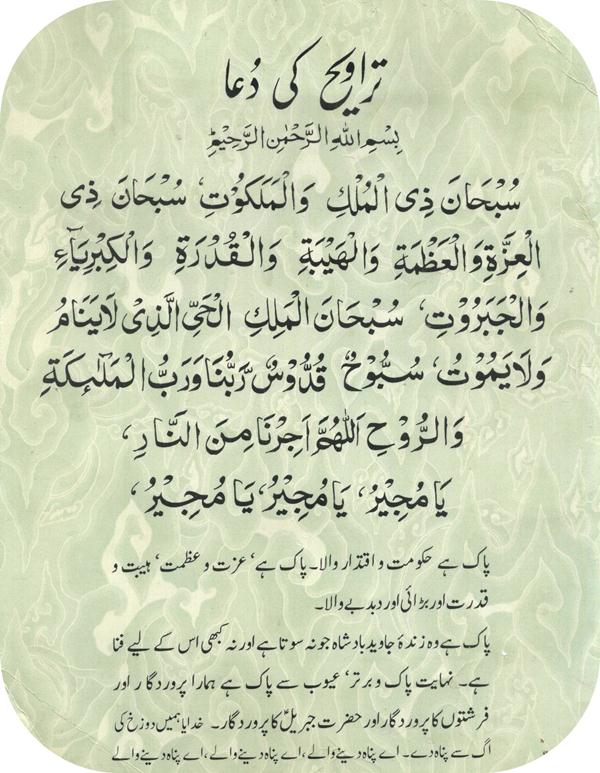 تراویح کی دُعا
بِسْمِ اللهِ الرَّحْمٰنِ الرَّحِيْمِ
سُبْحَانَ ذِی الْمُلْكِ وَالْمَلَكُوْتِ، سُبْحَانَ ذِی
الْعِزَّةِ وَالْعَظْمَةِ وَالْهَيْبَةِ وَالْقُدْرَةِ وَالْكِبْرِيَآءِ
وَالْجَبَرُوْتِ، سُبْحَانَ الْمَلِكِ الْحَیِّ الَّذِیْ لَايَنَامُ
وَلَا يَمُوْتُ، سُبُّوْحٌ قُدُّوْسٌ رَّبُّنَا وَرَبُّ الْمَلٰٓئِكَةِ
وَالرُّوْحِ اَللّٰهُمَّ اَجِرْنَا مِنَ النَّارِ،
يَا مُجِيْرُ، يَا مُجِيْرُ، يَا مُجِيْرُ،
پاک ہے حکومت و اقتدار والا۔ پاک ہے، عزت و عظمت، ہیبت و
قدرت اور بڑائی اور دبدبے والا۔
پاک ہے وہ زندۂ جاوید بادشاہ جو نہ سوتا ہے اور نہ کبھی اس کے لیے فنا
ہے۔ نہایت پاک و برتر، عیوب سے پاک ہے ہمارا پروردگار اور
فرشتوں کا پروردگار اور حضرت جبریلؑ کا پروردگار۔ خدایا ہمیں دوزخ کی
آگ سے پناہ دے۔ اے پناہ دینے والے، اے پناہ دینے والے، اے پناہ دینے والے